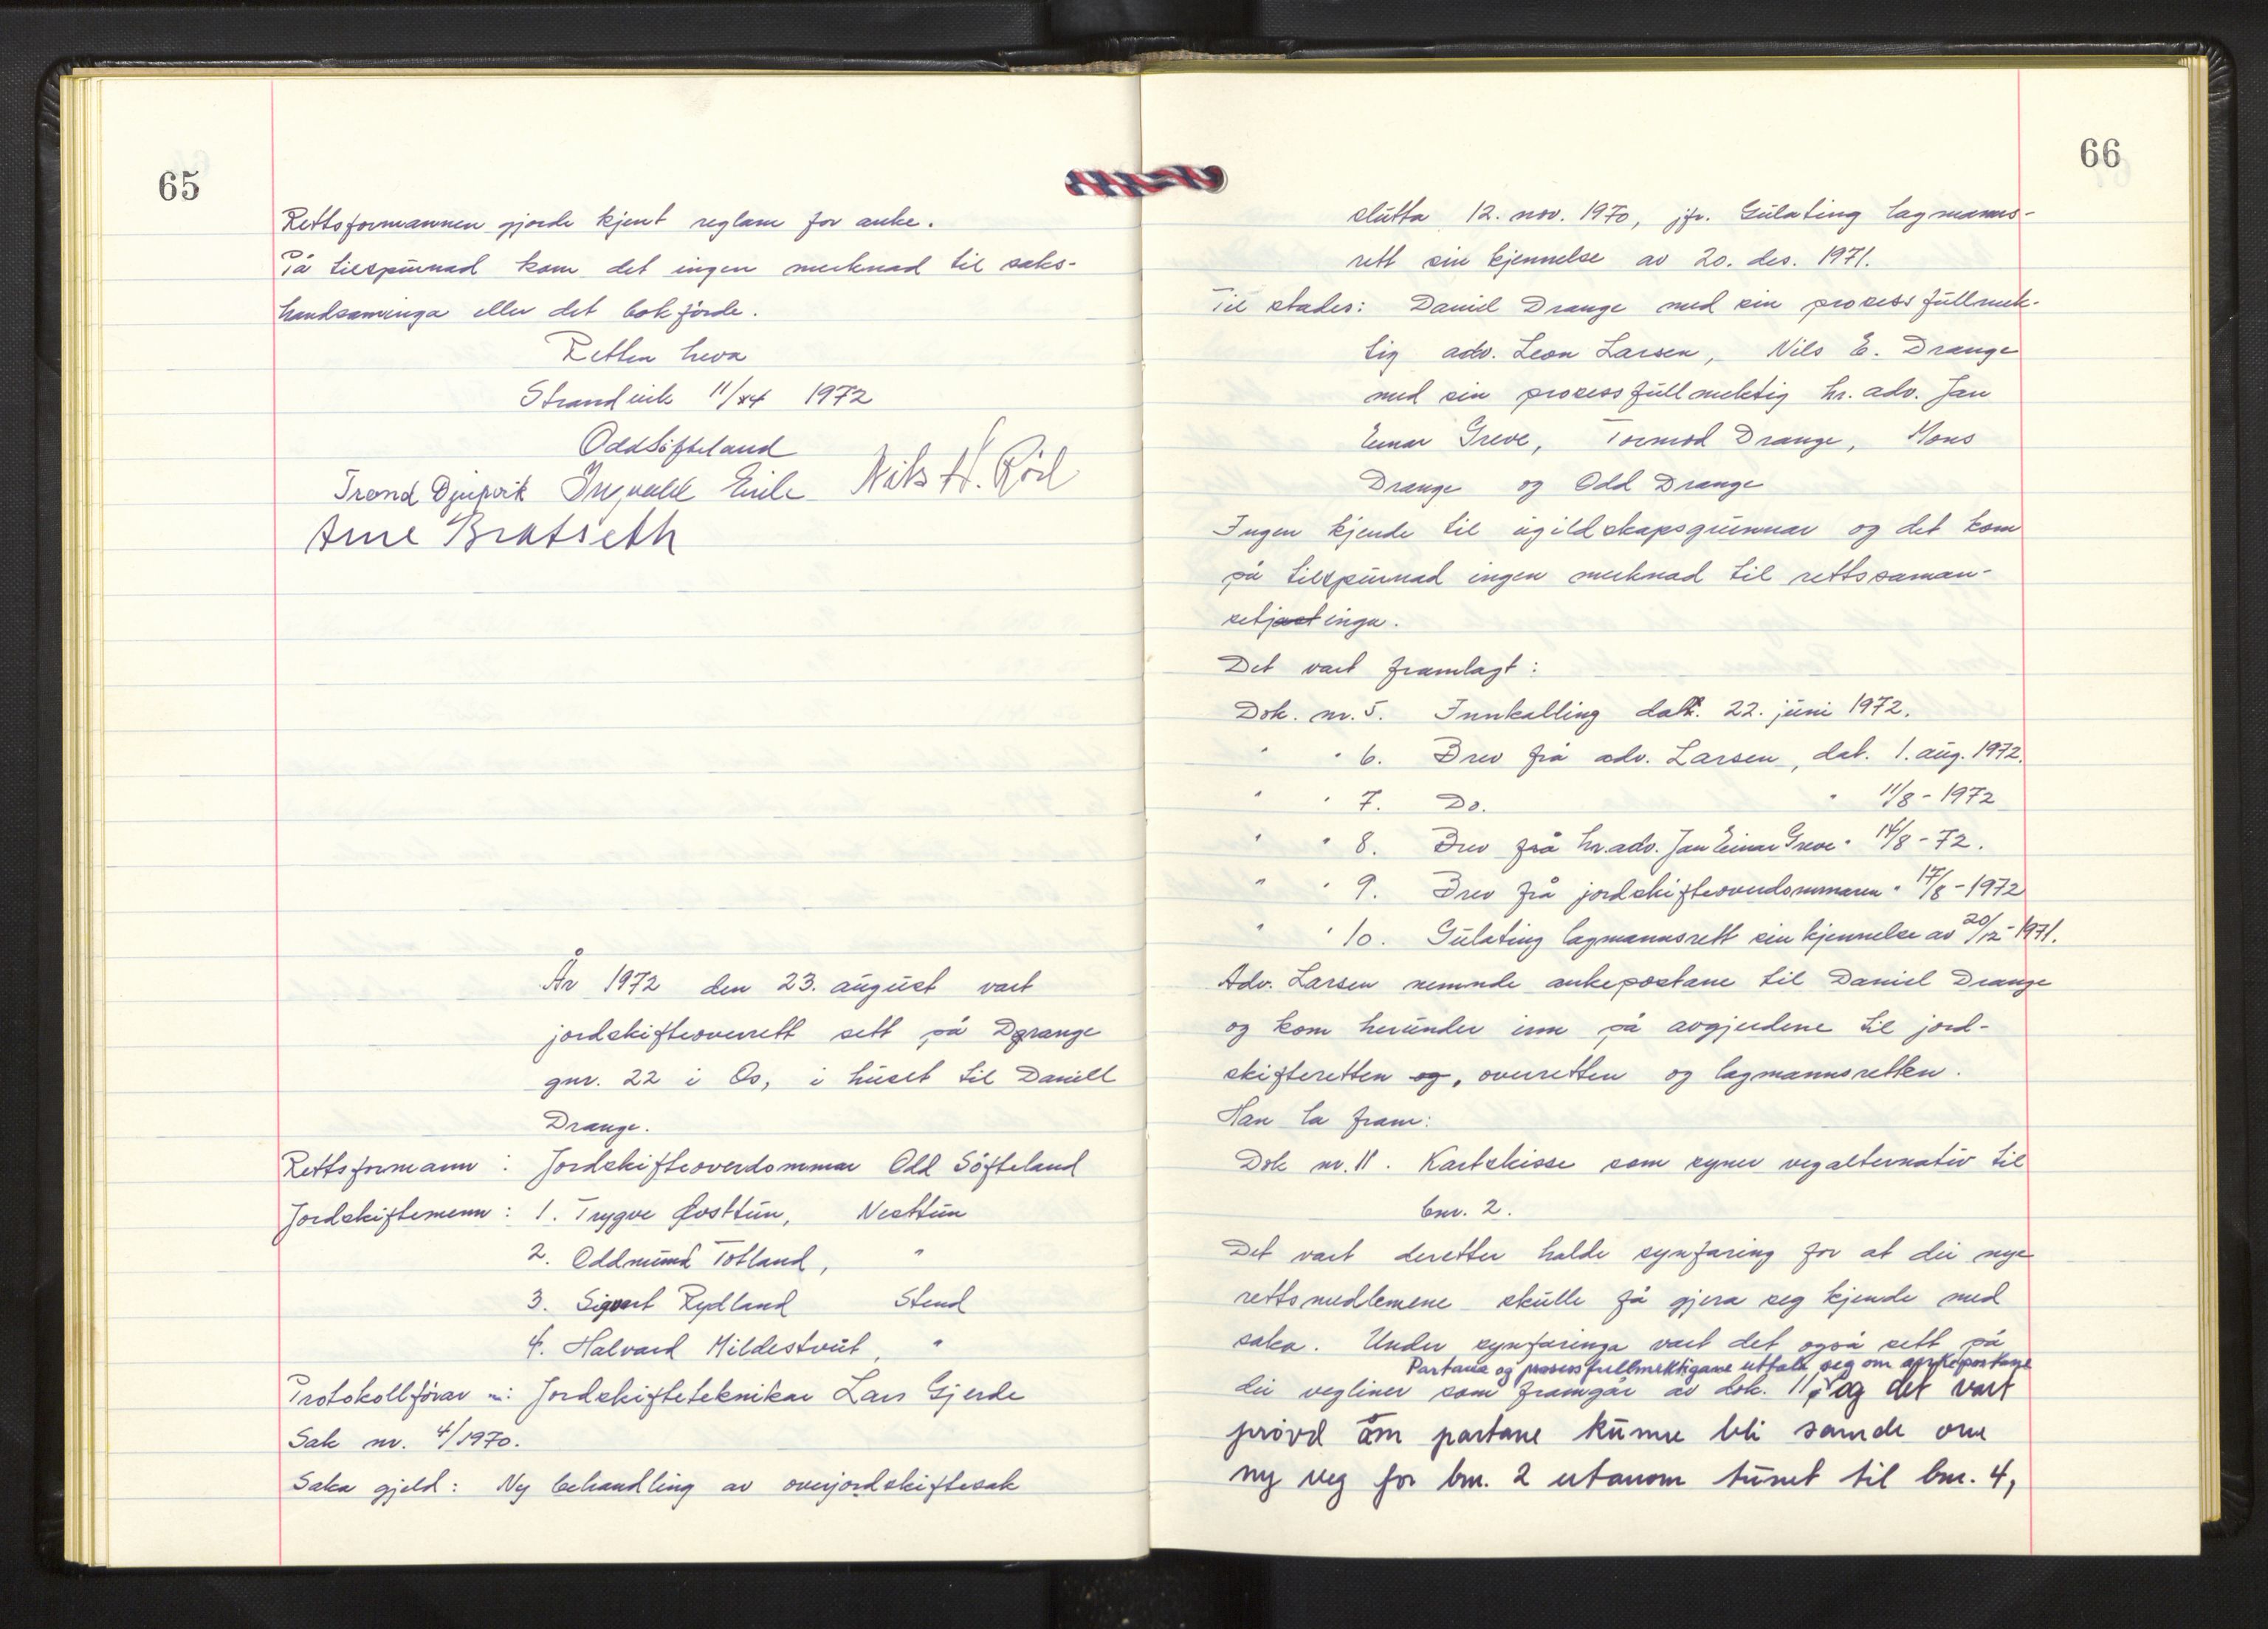 65
Rettsformannen gjorde kjent reglane for anke.
På tilspurnad kom det ingen merknad til saks-
handsaminga eller det bokförde.
Retten heva
Strandvik 11/4 1972
Odd Söfteland
Trond Djupvik Ingvald Eide Nils H. Röd
Arne Bratseth
År 1972 den 23. august vart
jordskifteoverrett sett på Drange
gnr. 22 i Os, i huset til Daniell
Drange.
Rettsformann : Jordskifteoverdommar Odd Söfteland
Jordskiftemenn : 1. Trygve Øvsttun, Nesttun
2. Oddmund Totland, "
3. Sigvart Rydland Stend
4. Halvard Mildestveit, "
Protokollförar : Jordskifteteknikar Lars Gjerde
Sak nr. 4/1970.
Saka gjeld : Ny behandling av overjordskiftesak
66
slutta 12. nov. 1970, jfr. Gulating lagmanns-
rett sin kjennelse av 20. des. 1971.
Til stades: Daniel Drange med sin prosessfullmek-
tig adv. Leon Larsen, Nils E. Drange
med sin prosessfullmektig hr. adv. Jan
Einar Greve, Tormod Drange, Mons
Drange og Odd Drange
Ingen kjende til ugildskapsgrunnar og det kom
på tilspurnad ingen merknad til rettssaman-
setjinga.
Det vart framlagt :
Dok. nr. 5. Innkalling dat. 22. juni 1972.
" " 6. Brev frå adv. Larsen, dat. 1. aug. 1972.
" " 7. Do. " 11/8 - 1972
" " 8. Brev frå hr. adv. Jan Einar Greve " 14/8 - 72.
" " 9. Brev frå jordskifteoverdommaren " 17/8 - 1972
" " 10. Gulating lagmannsrett sin kjennelse av 20/12 - 1971.
Adv. Larsen nemnde ankepostane til Daniel Drange
og kom herunder inn på avgjerdene til jord-
skifteretten og, overretten og lagmannsretten.
Han la fram:
Dok nr. 11. Kartskisse som syner vegalternativ til
bnr. 2.
Det vart deretter halde synfaring for at dei nye
rettsmedlemene skulle få gjera seg kjende med
saka. Under synfaringa vart det også sett på
Partane og prosessfullmektigane uttala seg om ankepostane
dei vegliner som framgår av dok. 11, og det vart
prøvd om partane kunne bli samde om
ny veg for bnr. 2 utanom tunet til bnr. 4,